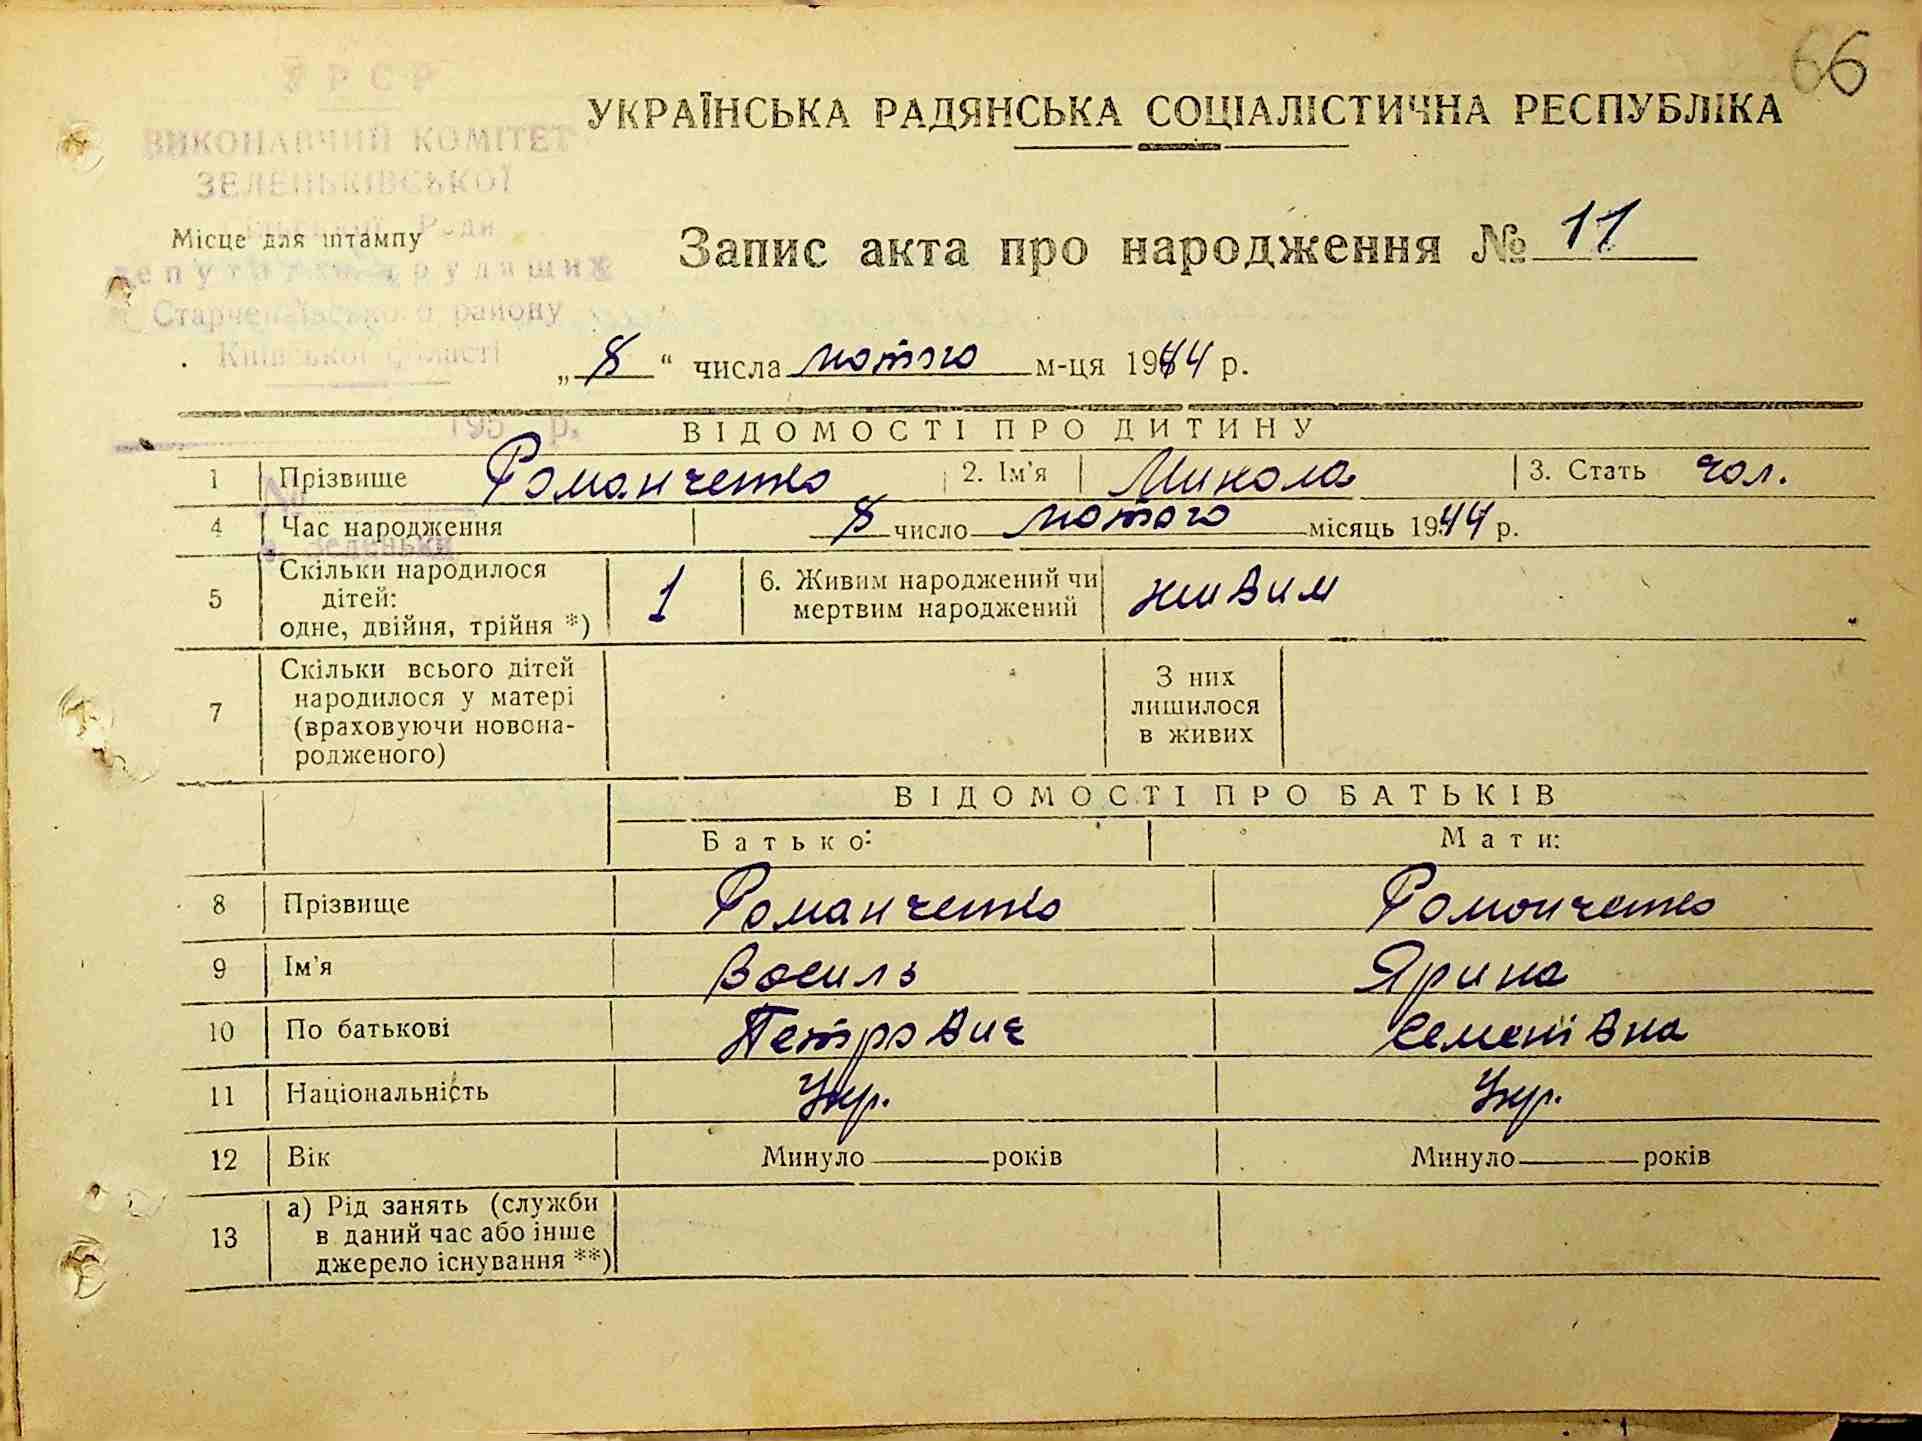 66
УРСР
ВИКОНАВЧИЙ КОМІТЕТ
ЗЕЛЕНЬКІВСЬКОЇ
Ради
депутатів трудящих
Старченківського району
Київської області
195 р.
№
с. Зеленьки
УКРАЇНСЬКА РАДЯНСЬКА СОЦІАЛІСТИЧНА РЕСПУБЛІКА
Місце для штампу
Запис акта про народження № 11
„ 8 “ числа лютого м-ця 1944 р.
ВІДОМОСТІ ПРО ДИТИНУ
1 Прізвище Романченко 2. Ім'я Микола 3. Стать чол.
4 Час народження 8 число лютого місяць 1944 р.
5 Скільки народилося
дітей:
одне, двійня, трійня *) 1
6. Живим народжений чи
мертвим народжений живим
7 Скільки всього дітей
народилося у матері
(враховуючи новона-
родженого)
З них
лишилося
в живих
ВІДОМОСТІ ПРО БАТЬКІВ
Батько: Мати:
8 Прізвище Романченко Романченко
9 Ім'я Василь Ярина
10 По батькові Петрович Семенівна
11 Національність Укр. Укр.
12 Вік Минуло років Минуло років
13 а) Рід занять (служби
в даний час або інше
джерело існування **)